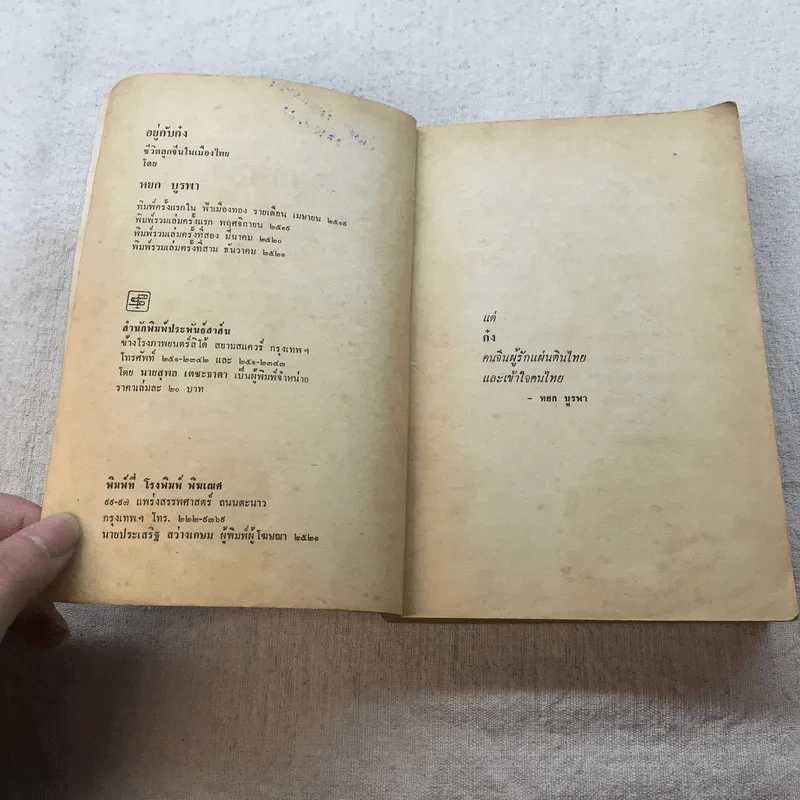 อยู่กับก๋ง
ชีวิตลูกจีนในเมืองไทย
โดย
หยก บูรพา
พิมพ์ครั้งแรกใน ฟ้าเมืองทอง รายเดือน เมษายน ๒๕๑๙
พิมพ์รวมเล่มครั้งแรก พฤศจิกายน ๒๕๑๙
พิมพ์รวมเล่มครั้งที่สอง มีนาคม ๒๕๒๐
พิมพ์รวมเล่มครั้งที่สาม ธันวาคม ๒๕๒๑
สำนักพิมพ์ประพันธ์สาส์น
ข้างโรงภาพยนตร์ลิโด้ สยามสแควร์ กรุงเทพฯ
โทรศัพท์ ๒๕๑-๒๓๔๒ และ ๒๕๑-๒๓๔๓
โดย นายสุพล เตชะธาดา เป็นผู้พิมพ์จำหน่าย
ราคาเล่มละ ๒๐ บาท
พิมพ์ที่ โรงพิมพ์ พิฆเณศ
๙๙-๙๗ แพร่งสรรพศาสตร์ ถนนตะนาว
กรุงเทพฯ โทร. ๒๒๒-๙๓๖๙
นายประเสริฐ สว่างเกษม ผู้พิมพ์ผู้โฆษณา ๒๕๒๑
แด่
ก๋ง
คนจีนผู้รักแผ่นดินไทย
และเข้าใจคนไทย
- หยก บูรพา